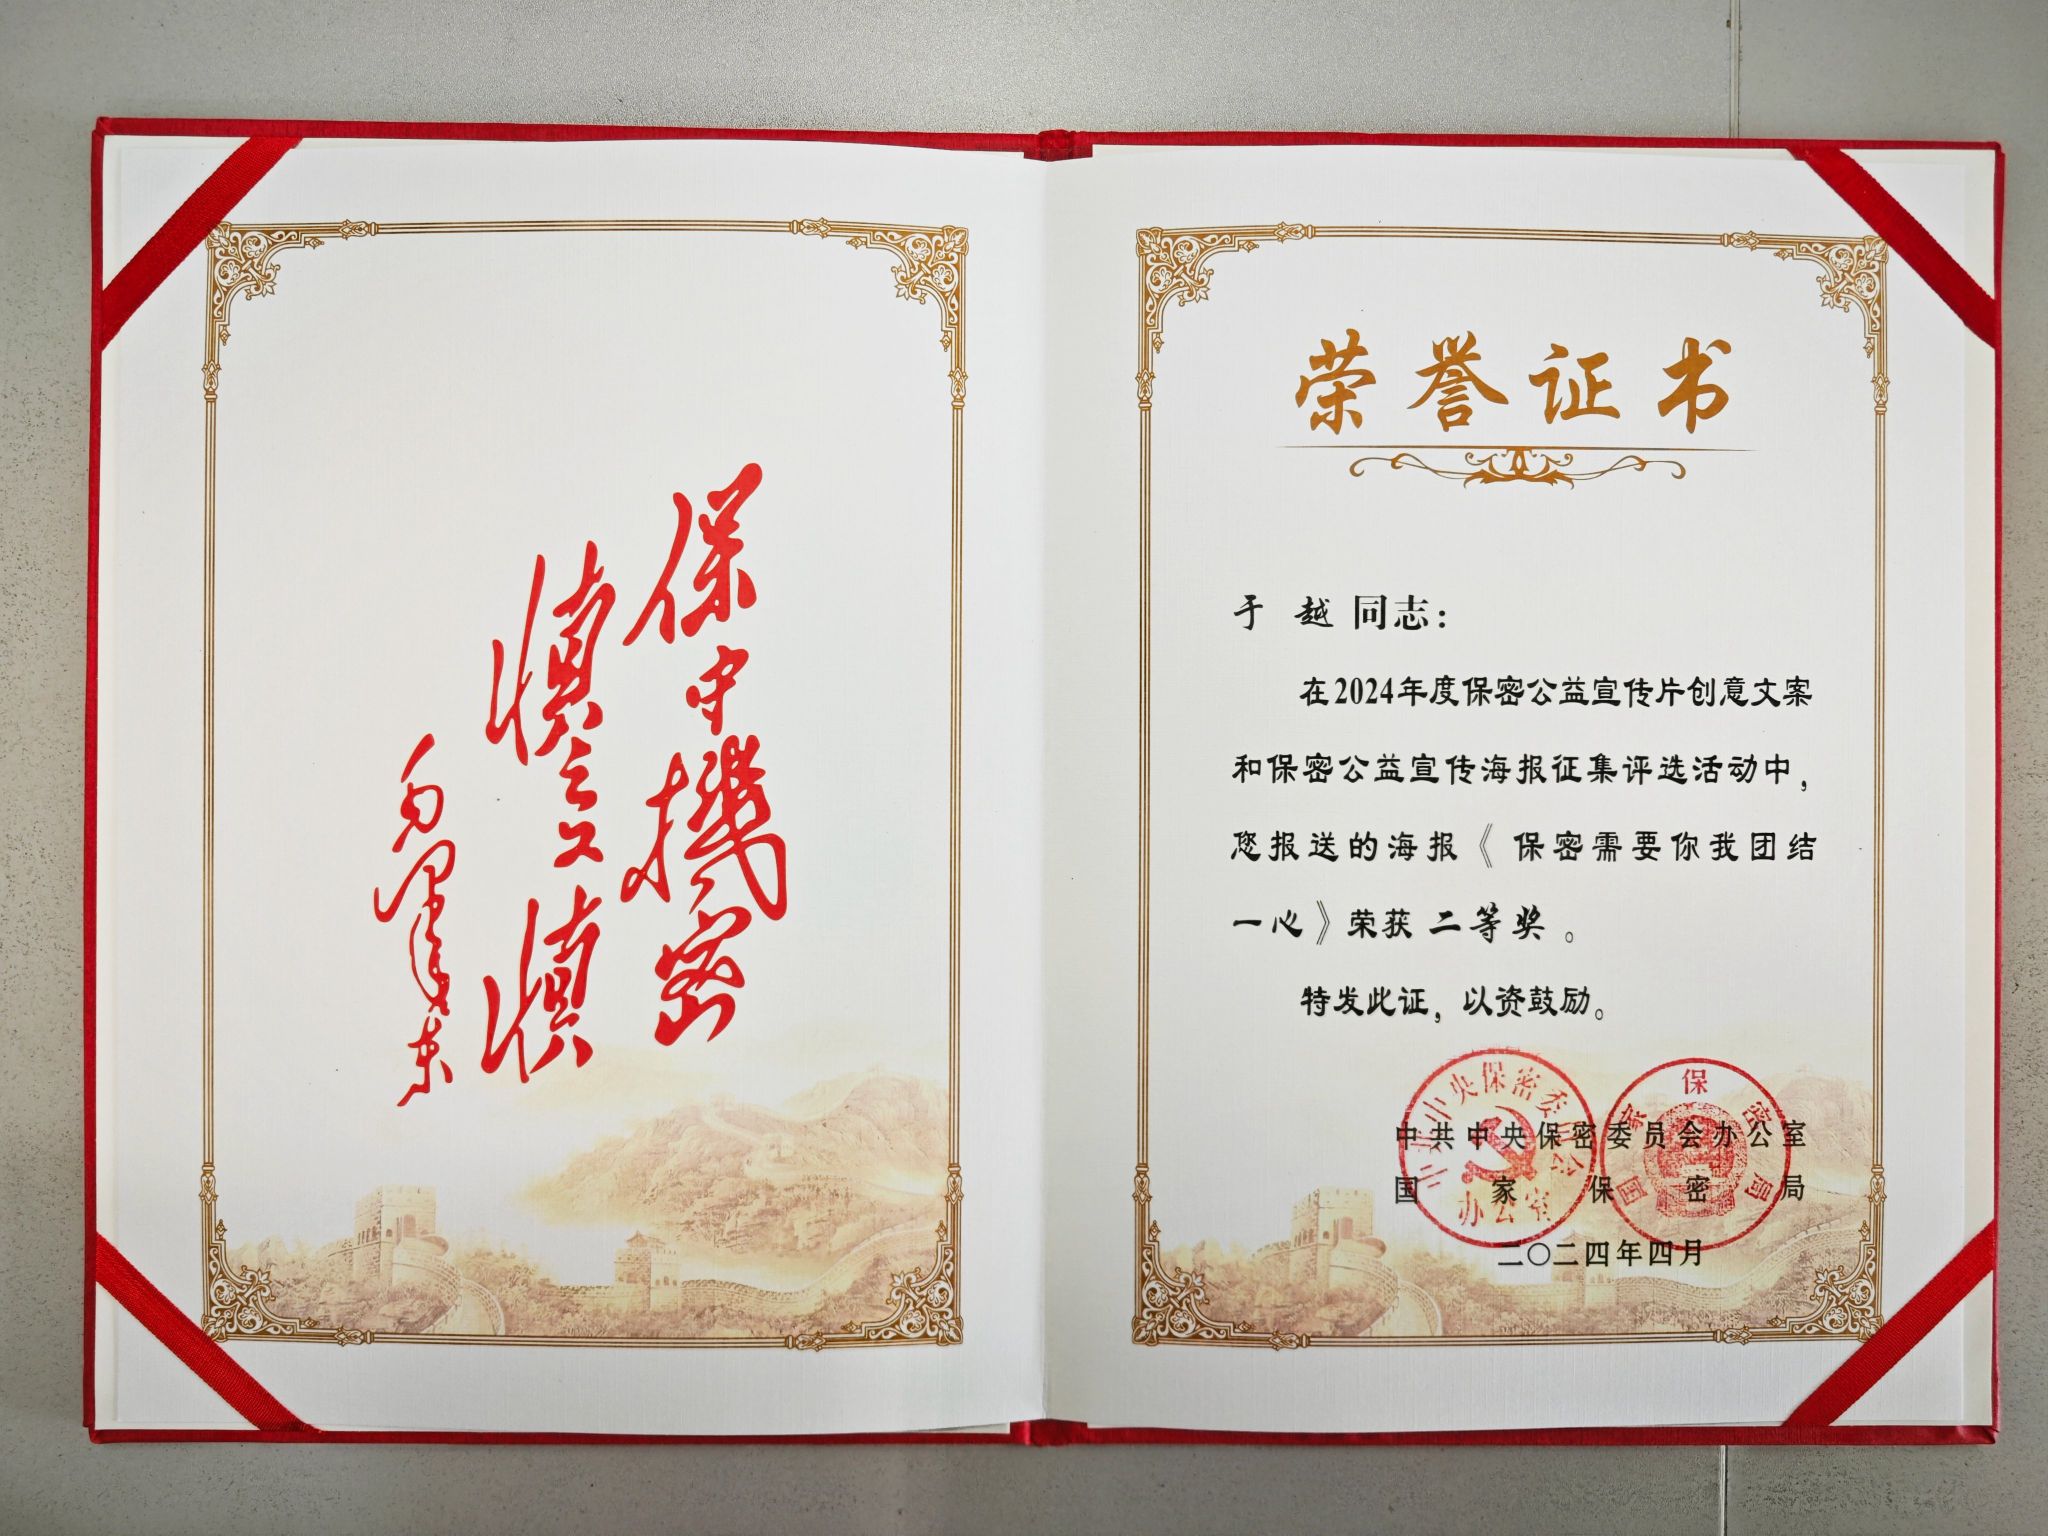 保守機密
慎之又慎
毛泽东
荣誉证书
于 越 同志：
在2024年度保密公益宣传片创意文案
和保密公益宣传海报征集评选活动中，
您报送的海报《保密需要你我团结
一心》荣获 二等奖 。
特发此证，以资鼓励。
中共中央保密委员会办公室
国家保密局
二〇二四年四月
中共中央保密委员会
办公室
国家保密局